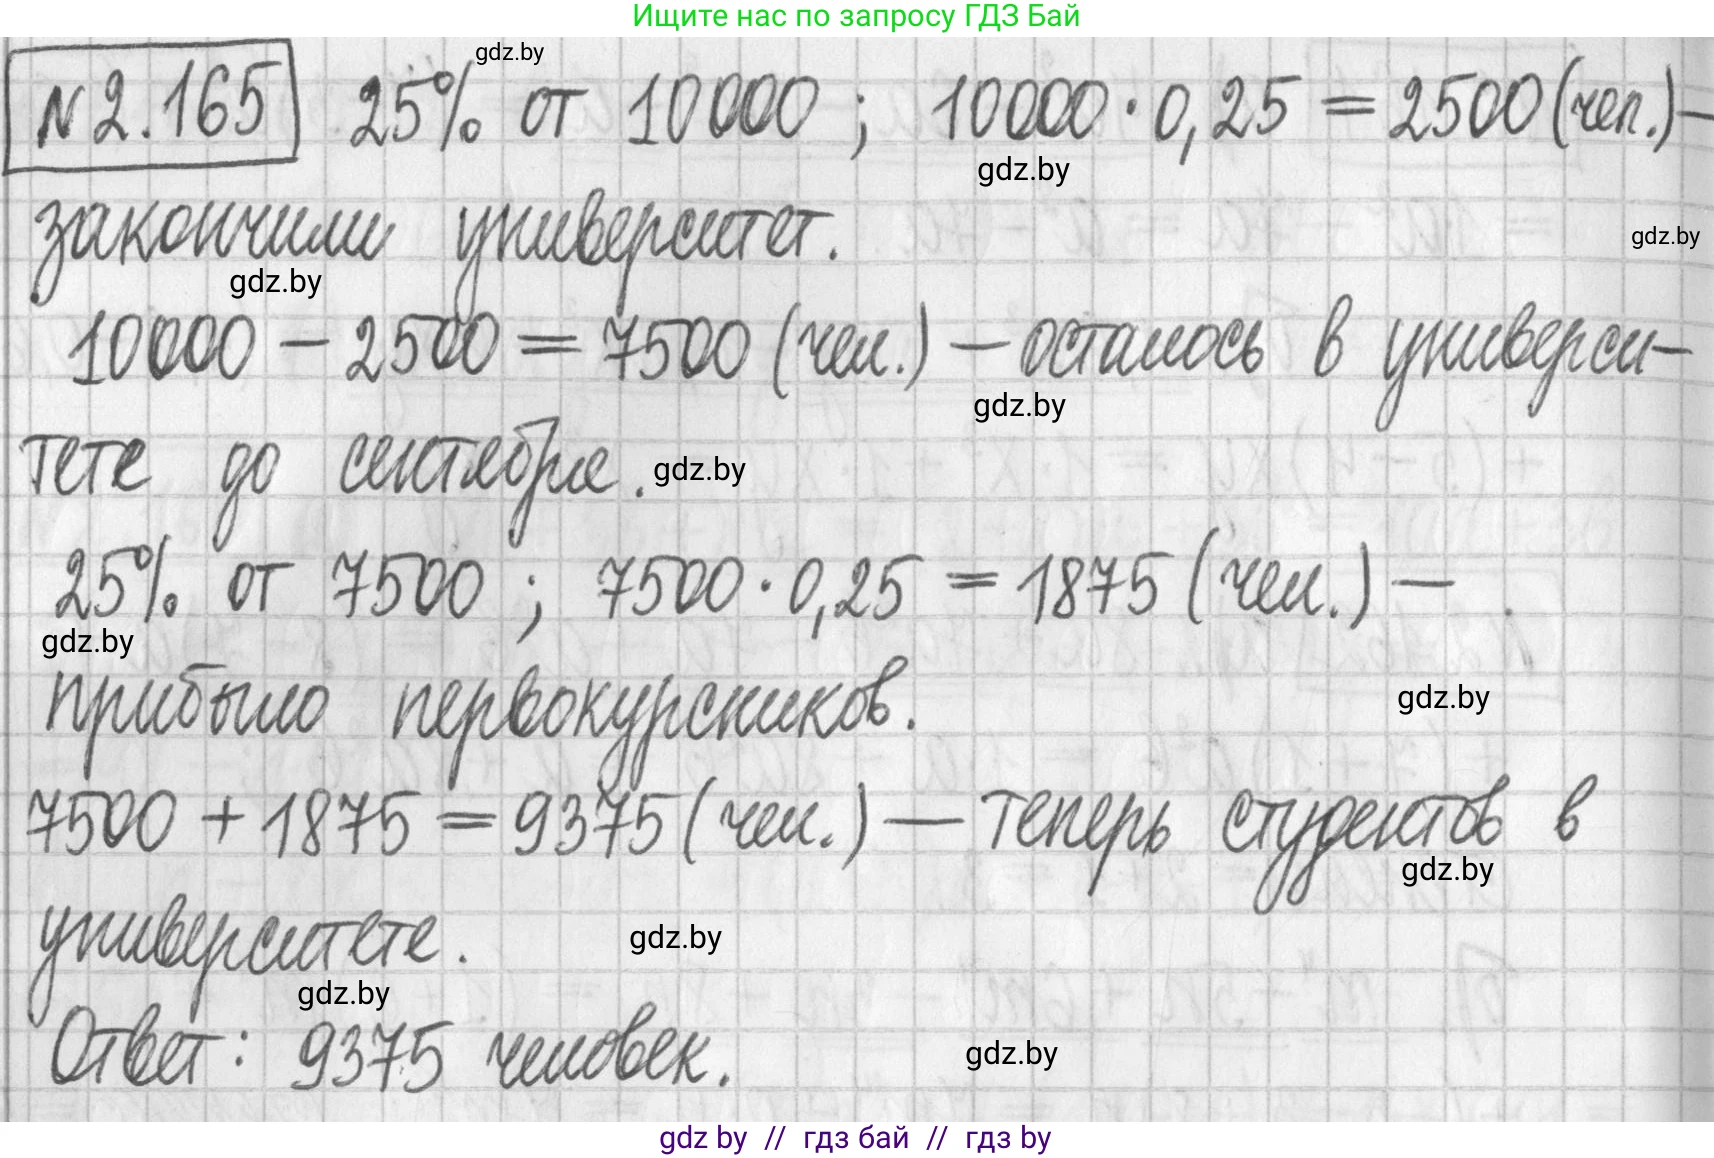 Ищите нас по запросу ГДЗ Бай
gdz.by
№2.165 25% от 10000 ; 10000 · 0,25 = 2500 (чел.) –
gdz.by
закончили университет.
gdz.by
gdz.by
10000 – 2500 = 7500 (чел.) – осталось в универси-
gdz.by
тете до сентября.
gdz.by
25% от 7500 ; 7500 · 0,25 = 1875 (чел.) –
gdz.by
прибыло первокурсников.
gdz.by
7500 + 1875 = 9375 (чел.) – теперь студентов в
gdz.by
университете.
gdz.by
gdz.by
Ответ: 9375 человек.
gdz.by
gdz by // гдз бай // гдз by